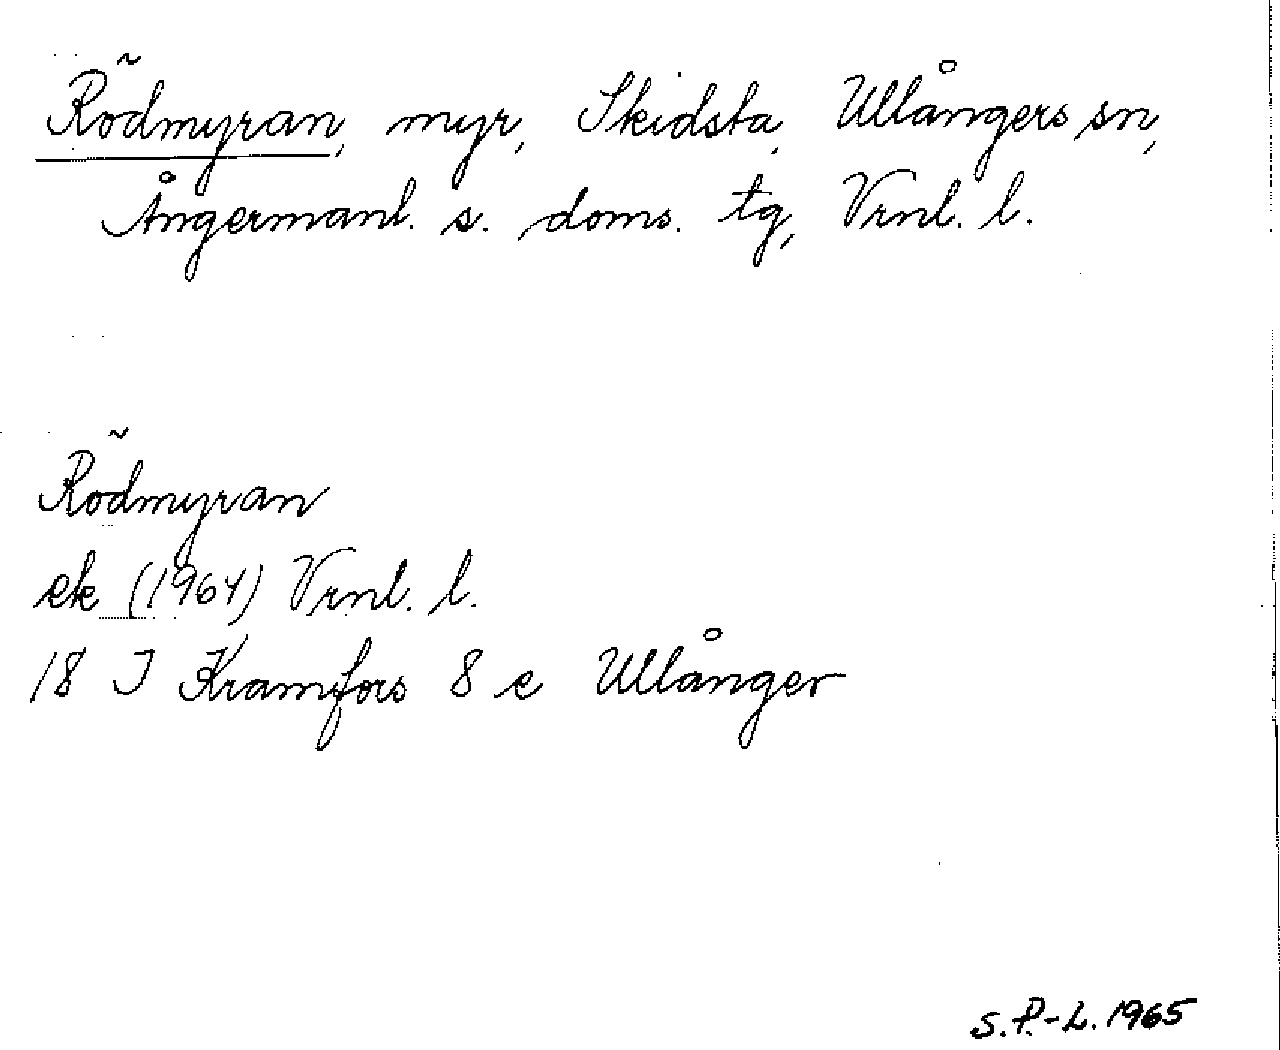 Rödmyran, myr, Skidsta, Ullångers sn,
Ångermanl. s. doms. tg, Vrnl. l.
Rödmyran
ek (1964) Vrnl. l.
18 I Kramfors 8 e Ullånger
S. P.-L. 1965